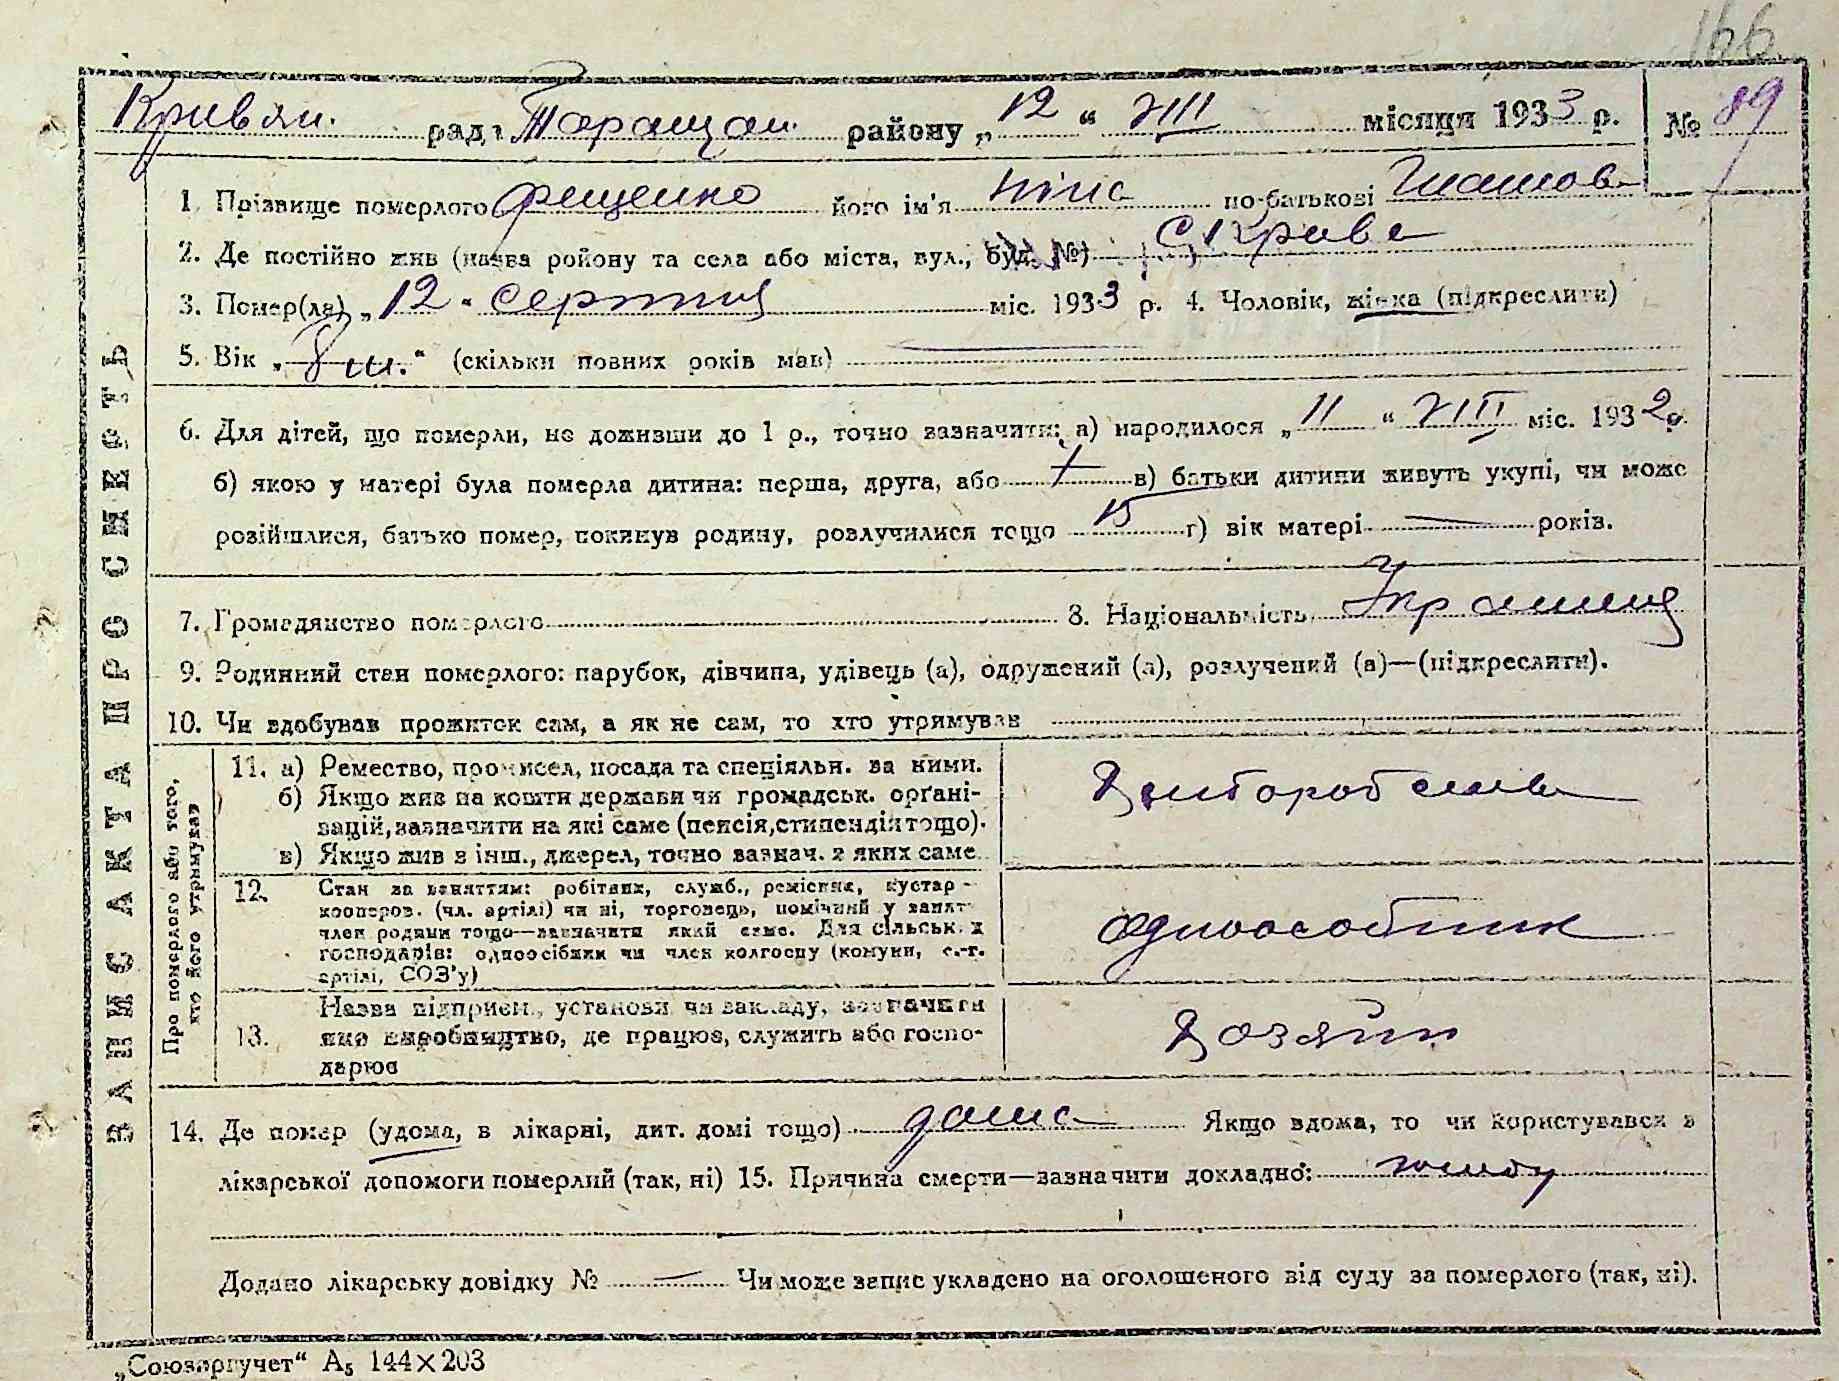 166
Кривян. ради Таращан. району „12“ VIII місяця 1933 р. № 89
1. Прізвище померлого Фещенко його ім'я Ніна по-батькові
2. Де постійно жив (назва ройону та села або міста, вул., буд. №) С. Крива
3. Помер(ла) „12“ серпня міс. 1933 р. 4. Чоловік, жінка (підкреслити)
5. Вік „8 м.“ (скільки повних років мав) —
6. Для дітей, що померли, не доживши до 1 р., точно зазначити: а) народилося „11“ VIII міс. 1932 р.
б) якою у матері була померла дитина: перша, друга, або в) батьки дитини живуть укупі, чи може
розійшлися, батько помер, покинув родину, розлучилися тощо г) вік матері — років.
7. Громадянство померлого 8. Національність
9. Родинний стан померлого: парубок, дівчина, удівець (а), одружений (а), розлучений (а)—(підкреслити).
10. Чи здобував прожиток сам, а як не сам, то хто утримував
ЗАПИС АКТА ПРО СМЕРТЬ
Про померлого або того, хто його утримував
11. а) Ремество, промисел, посада та спеціяльн. за ними.
б) Якщо жив на кошти держави чи громадськ. орґані-
зацій, зазначити на які саме (пенсія, стипендія тощо).
в) Якщо жив з інш., джерел, точно зазнач. з яких саме
12. Стан за заняттям: робітник, служб., ремісник, кустар -
кооперов. (чл. артілі) чи ні, торговець, помічний у занят-
член родини тощо—зазначити який саме. Для сільськ. х
господарів: одноосібник чи член колгоспу (комуни, с.-г.
артілі, СОЗ'у)
одноособник
13. Назва підприєм., установи чи закладу, зазначити
яке виробництво, де працює, служить або госпо-
дарює
Хозяйн
14. Де помер (удома, в лікарні, дит. домі тощо) дома Якщо вдома, то чи користувався з
лікарської допомоги померлий (так, ні) 15. Причина смерти—зазначити докладно:
Додано лікарську довідку № — Чи може запис укладено на оголошеного від суду за померлого (так, ні).
„Союзоргучет“ А5 144×203